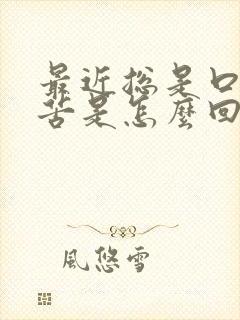 最近总是口
苦是怎麽回
風悠雪